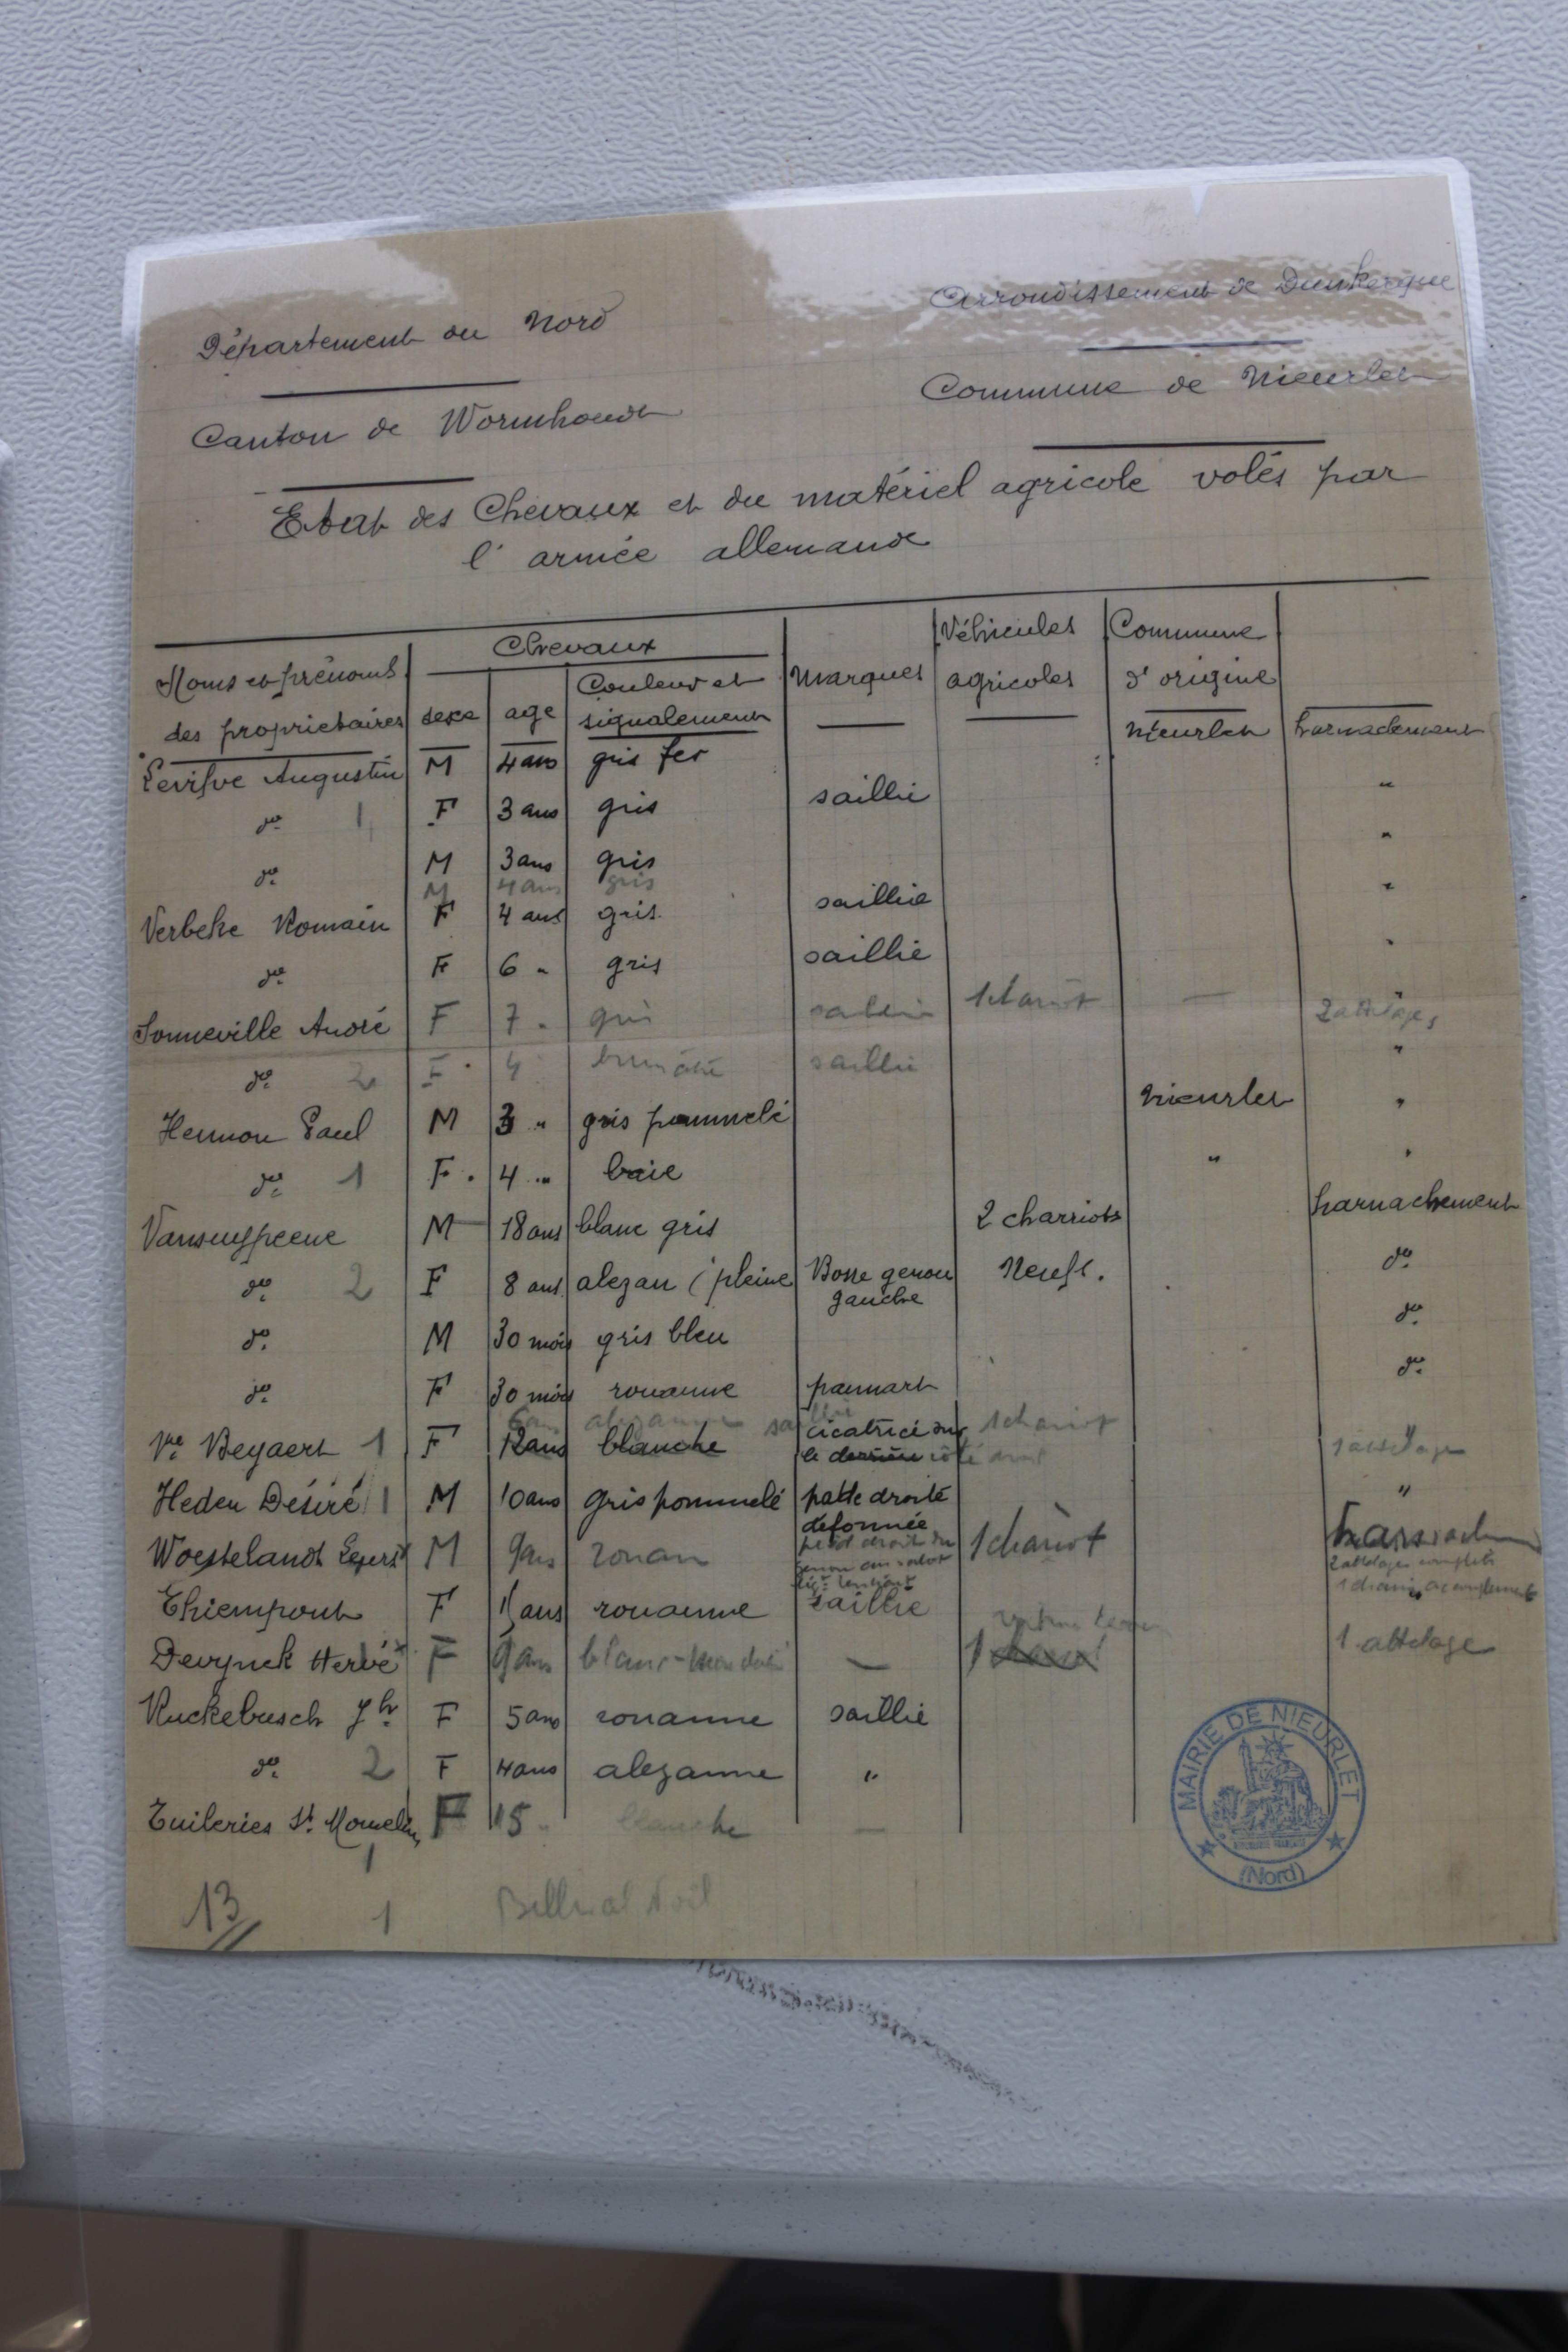 Département du Nord
Arrondissement de Dunkerque
Canton de Wormhoudt
Commune de Nieurlet
Etat des Chevaux et du matériel agricole volés par
l'armée allemande
Noms et prénoms des propriétaires Chevaux sexe age Couleur et signalement Marques Véhicules agricoles Commune d'origine
Levifve Augustin M 4 ans gris fer Nieurlet harnachement
do 1 F 3 ans gris saillie "
do M 3 ans gris "
M 4 ans gris
Verbeke Romain F 4 ans gris saillie "
do F 6 " gris saillie "
Sonneville André F 7 " gris saillie 1 chariot — " 2 attelages
do 2 F 4 saillie "
Hennon Paul M 3 " gris pommelé Nieurlet "
do 1 F 4 " baie " "
Vansuypeene M 18 ans blanc gris 2 charriots harnachement
do 2 F 8 ans alezan (pleine Bosse genou gauche Neufs. do
do M 30 mois gris bleu do
do F 30 mois rouanne pannart do
6 ans alezanne saillie
Ve Beyaert 1 F 12 ans blanche cicatrice sur le derrière côté droit 1 chariot 1 attelage
Heden Désiré 1 M 10 ans gris pommelé patte droite déformée "
Woestelandt M 9 ans rouan 1 chariot 2 attelages complets
Thiempont F ans rouanne saillie
Devynck Hervé F 9 ans blanc — 1 1 attelage
Ruckebusch Jh F 5 ans rouanne saillie
do 2 F 4 ans alezanne "
Tuileries St. Momelin F 15 " blanche —
1
13 1
MAIRIE DE NIEURLET
(Nord)